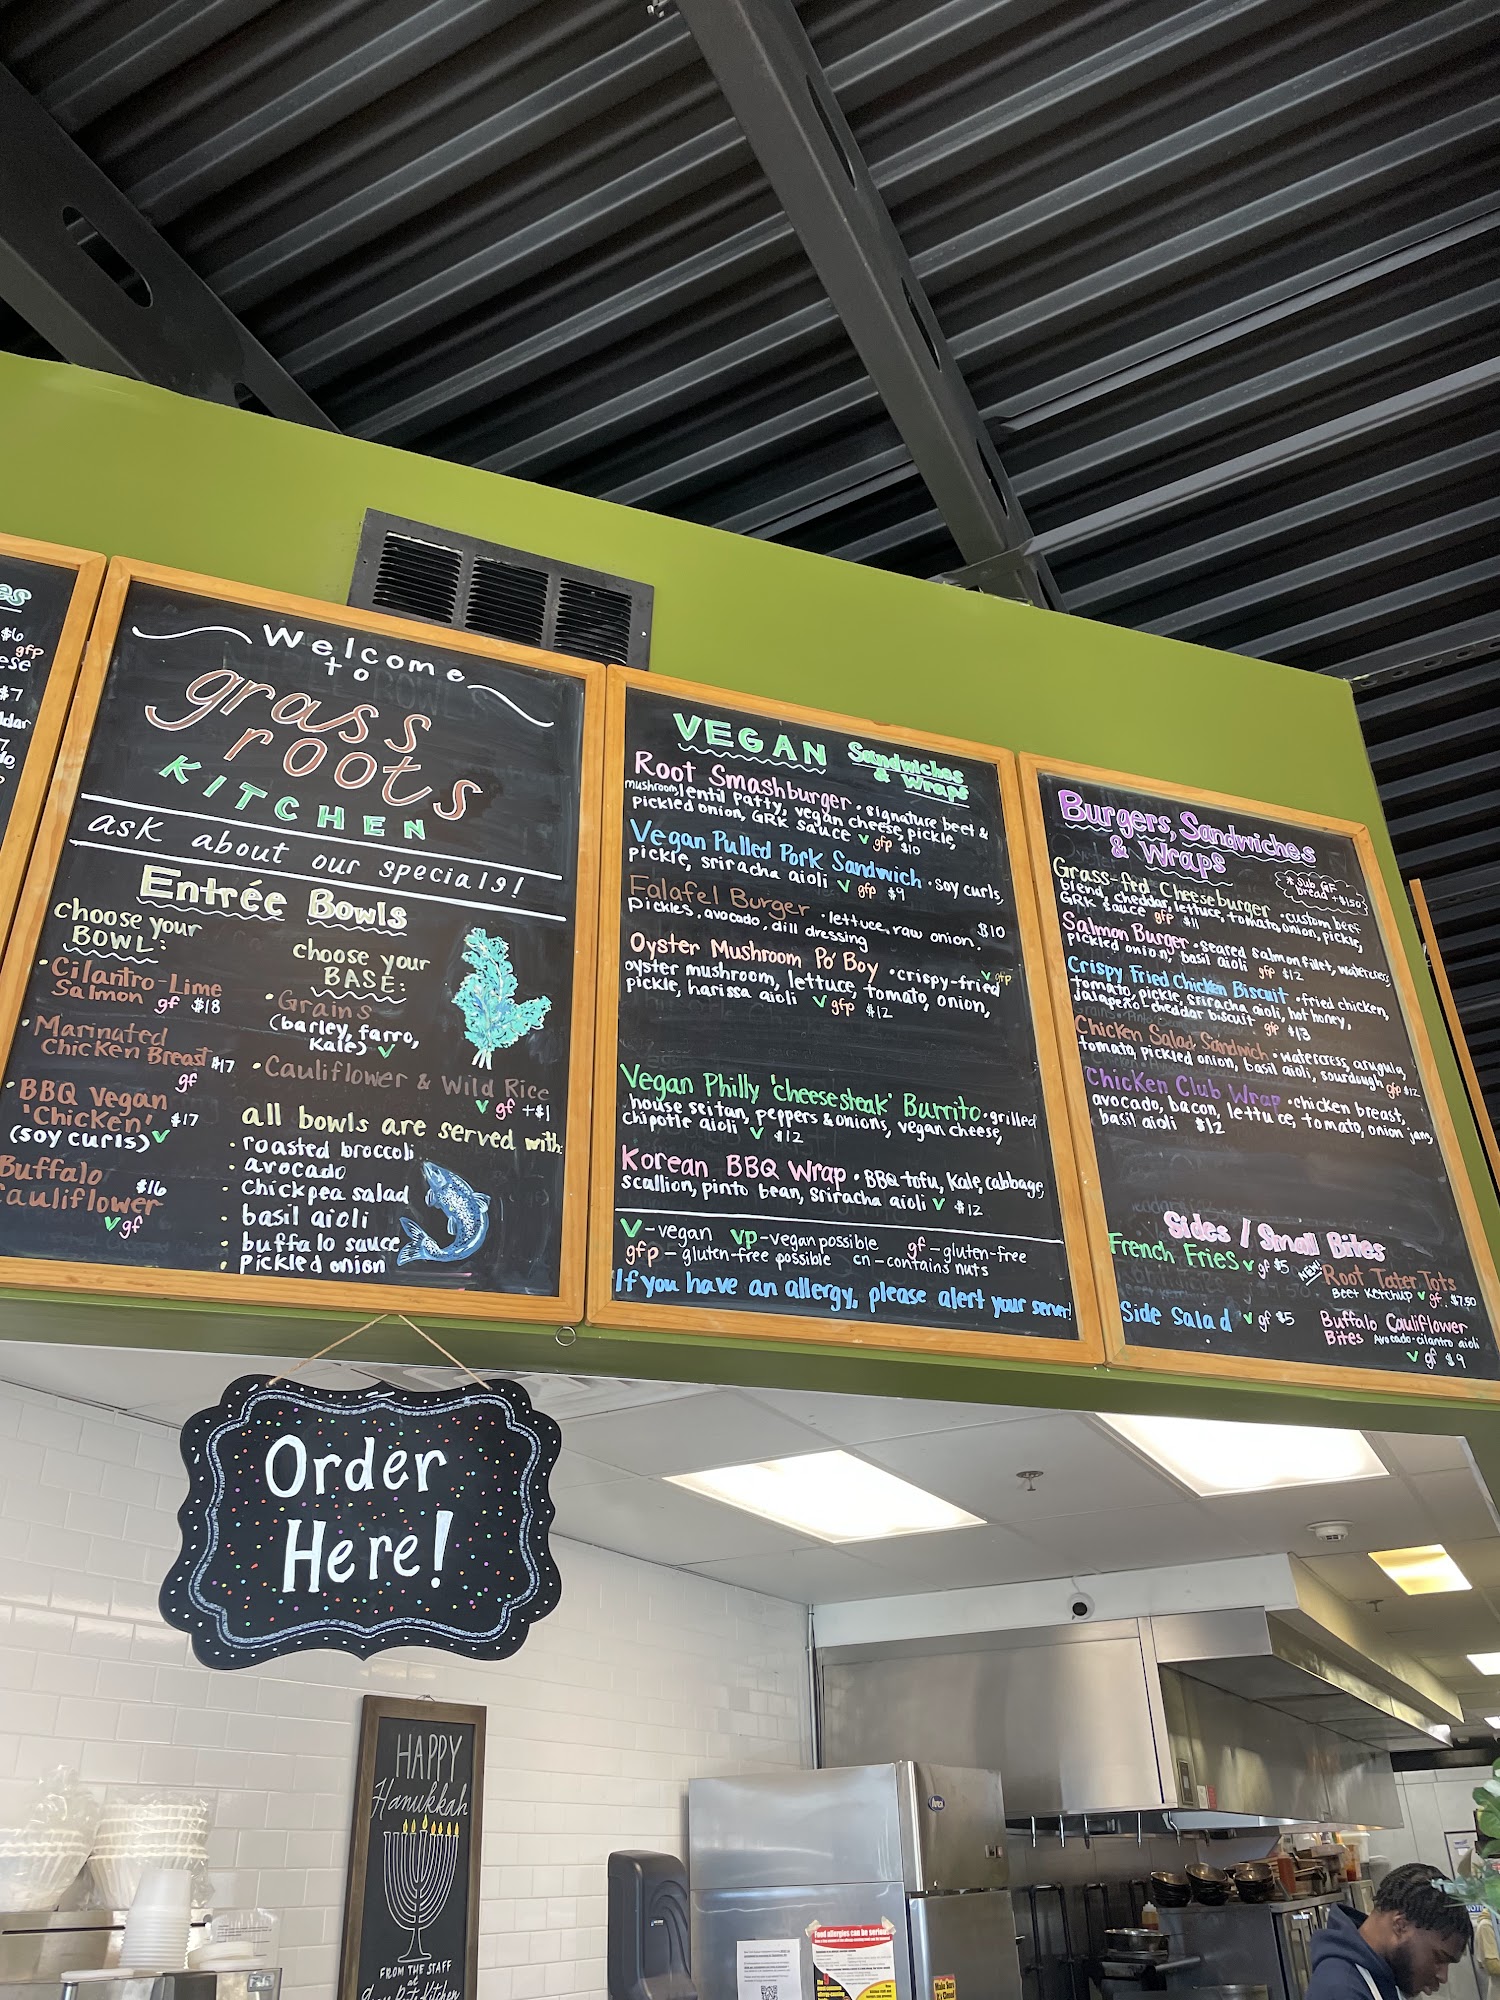 es
$6
gfp
ese
$7
ddar
Welcome
to
grass
roots
KITCHEN
ask about our specials!
Entrée Bowls
choose your
BOWL:
• Cilantro-Lime
Salmon gf $18
• Marinated
Chicken Breast $17
gf
• BBQ Vegan
'Chicken' $17
(soy curls) V
Buffalo $16
Cauliflower
V gf
choose your
BASE:
• Grains
(barley, farro,
Kale) V
• Cauliflower & Wild Rice
V gf +$1
all bowls are served with:
• roasted broccoli
• avocado
• chickpea salad
• basil aioli
• buffalo sauce
• pickled onion
VEGAN Sandwiches
& Wraps
Root Smashburger • signature beet &
mushroom, lentil patty, vegan cheese, pickle,
pickled onion, GRK sauce V gfp $10
Vegan Pulled Pork Sandwich • soy curls,
pickle, sriracha aioli V gfp $9
Falafel Burger • lettuce, raw onion, $10
pickles, avocado, dill dressing
V gfp
Oyster Mushroom Po' Boy • crispy-fried
oyster mushroom, lettuce, tomato, onion,
pickle, harissa aioli V gfp $12
Vegan Philly 'cheesesteak' Burrito • grilled
house seitan, peppers & onions, vegan cheese,
chipotle aioli V $12
Korean BBQ Wrap • BBQ tofu, kale, cabbage,
scallion, pinto bean, sriracha aioli V $12
V - vegan vp - vegan possible gf - gluten-free
gfp - gluten-free possible cn - contains nuts
If you have an allergy, please alert your server!
Burgers, Sandwiches
& Wraps
* sub GF
bread +$1.50
Grass-fed Cheeseburger • custom beef
blend, cheddar, lettuce, tomato, onion, pickle,
GRK sauce gfp $11
Salmon Burger • seared salmon filet, watercress,
pickled onion, basil aioli gfp $12
Crispy Fried Chicken Biscuit • fried chicken,
tomato, pickle, sriracha aioli, hot honey,
jalapeño-cheddar biscuit gfp $13
Chicken Salad Sandwich • watercress, arugula,
tomato, pickled onion, basil aioli, sourdough gfp $12
Chicken Club Wrap • chicken breast,
avocado, bacon, lettuce, tomato, onion jam,
basil aioli $12
Sides / Small Bites
French Fries V gf $5
NEW! Root Tater Tots
Beet Ketchup V gf $7.50
Side Salad V gf $5
Buffalo Cauliflower
Bites Avocado-cilantro aioli
V gf $9
Order
Here!
HAPPY
Hanukkah
FROM THE STAFF
at
Grass Roots Kitchen
Food allergies can be serious